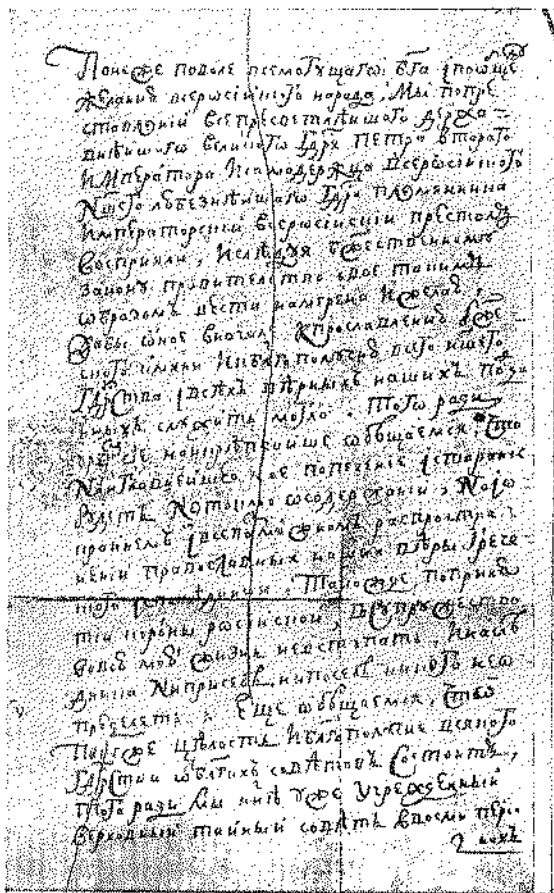 Понеже поволе всемогущагѡ бг҃а їпоѡбще
желанию всероссійского народа, Мы попре
ставлениї Всепресветлѣишого держа=
внѣишаго великогѡ Гдр҃я Петра втораго
Императора Исамодержца Всеросійского
Н҃шего любезнѣишагѡ Гдр҃я племянника
Императорскиї всеросиіскиї престолъ
Восприяли, Иследуя бжественномъ
законꙋ правителство свое такимъ
ѡбразомъ вести намерена Ижелаю,
Дабы ѡное вначале Кпрославлению Бже=
ского имяни Икблгополꙋчию всего н҃шего
Гдрства ївсѣхъ вѣрныхъ нашихъ подда
ныхъ слꙋжить могло. Того ради
чрезъ сие наикрѣпчаише ѡбѣщаемся. Что
Наиглавнеишее мое попечение їстарание
бꙋдетъ Нетокмо ѡсодержаниї, Ноїѡ
краинемъ ївсевозможномъ распростра=
нениї православныя нашея вѣры грече
ского исповѣдания, Такожде, поприня
тиї короны росиіской, Всупружество
вовсю мою жизнь невступать, Инаслѣ
дникаНиприсебѣ, нипосебѣ никого неѡ
пределять. Еще ѡбѣщаемся, Что
Понеже цѣлость Иблгополꙋчие всякого
Гдрства ѿблгихъ совѣтовъ Состоитъ,
Того ради Мы н҃нѣ уже учрежденныї
Верховныї таиныї совѣтъ ввосми персо
нахъ